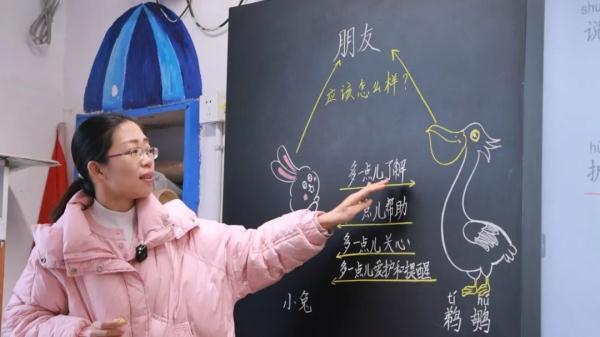 朋友
应该怎么样?
多一点儿了解
一点儿帮助
多一点儿关心
多一点儿爱护和提醒
小兔
tí hú
鹈鹕
说
护